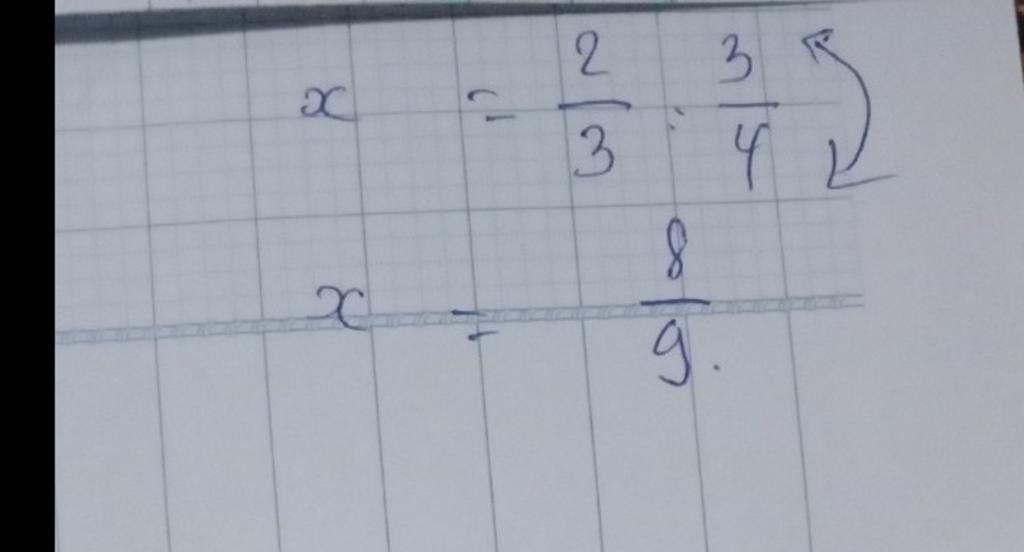 x = 2/3 : 3/4
x = 8/9.